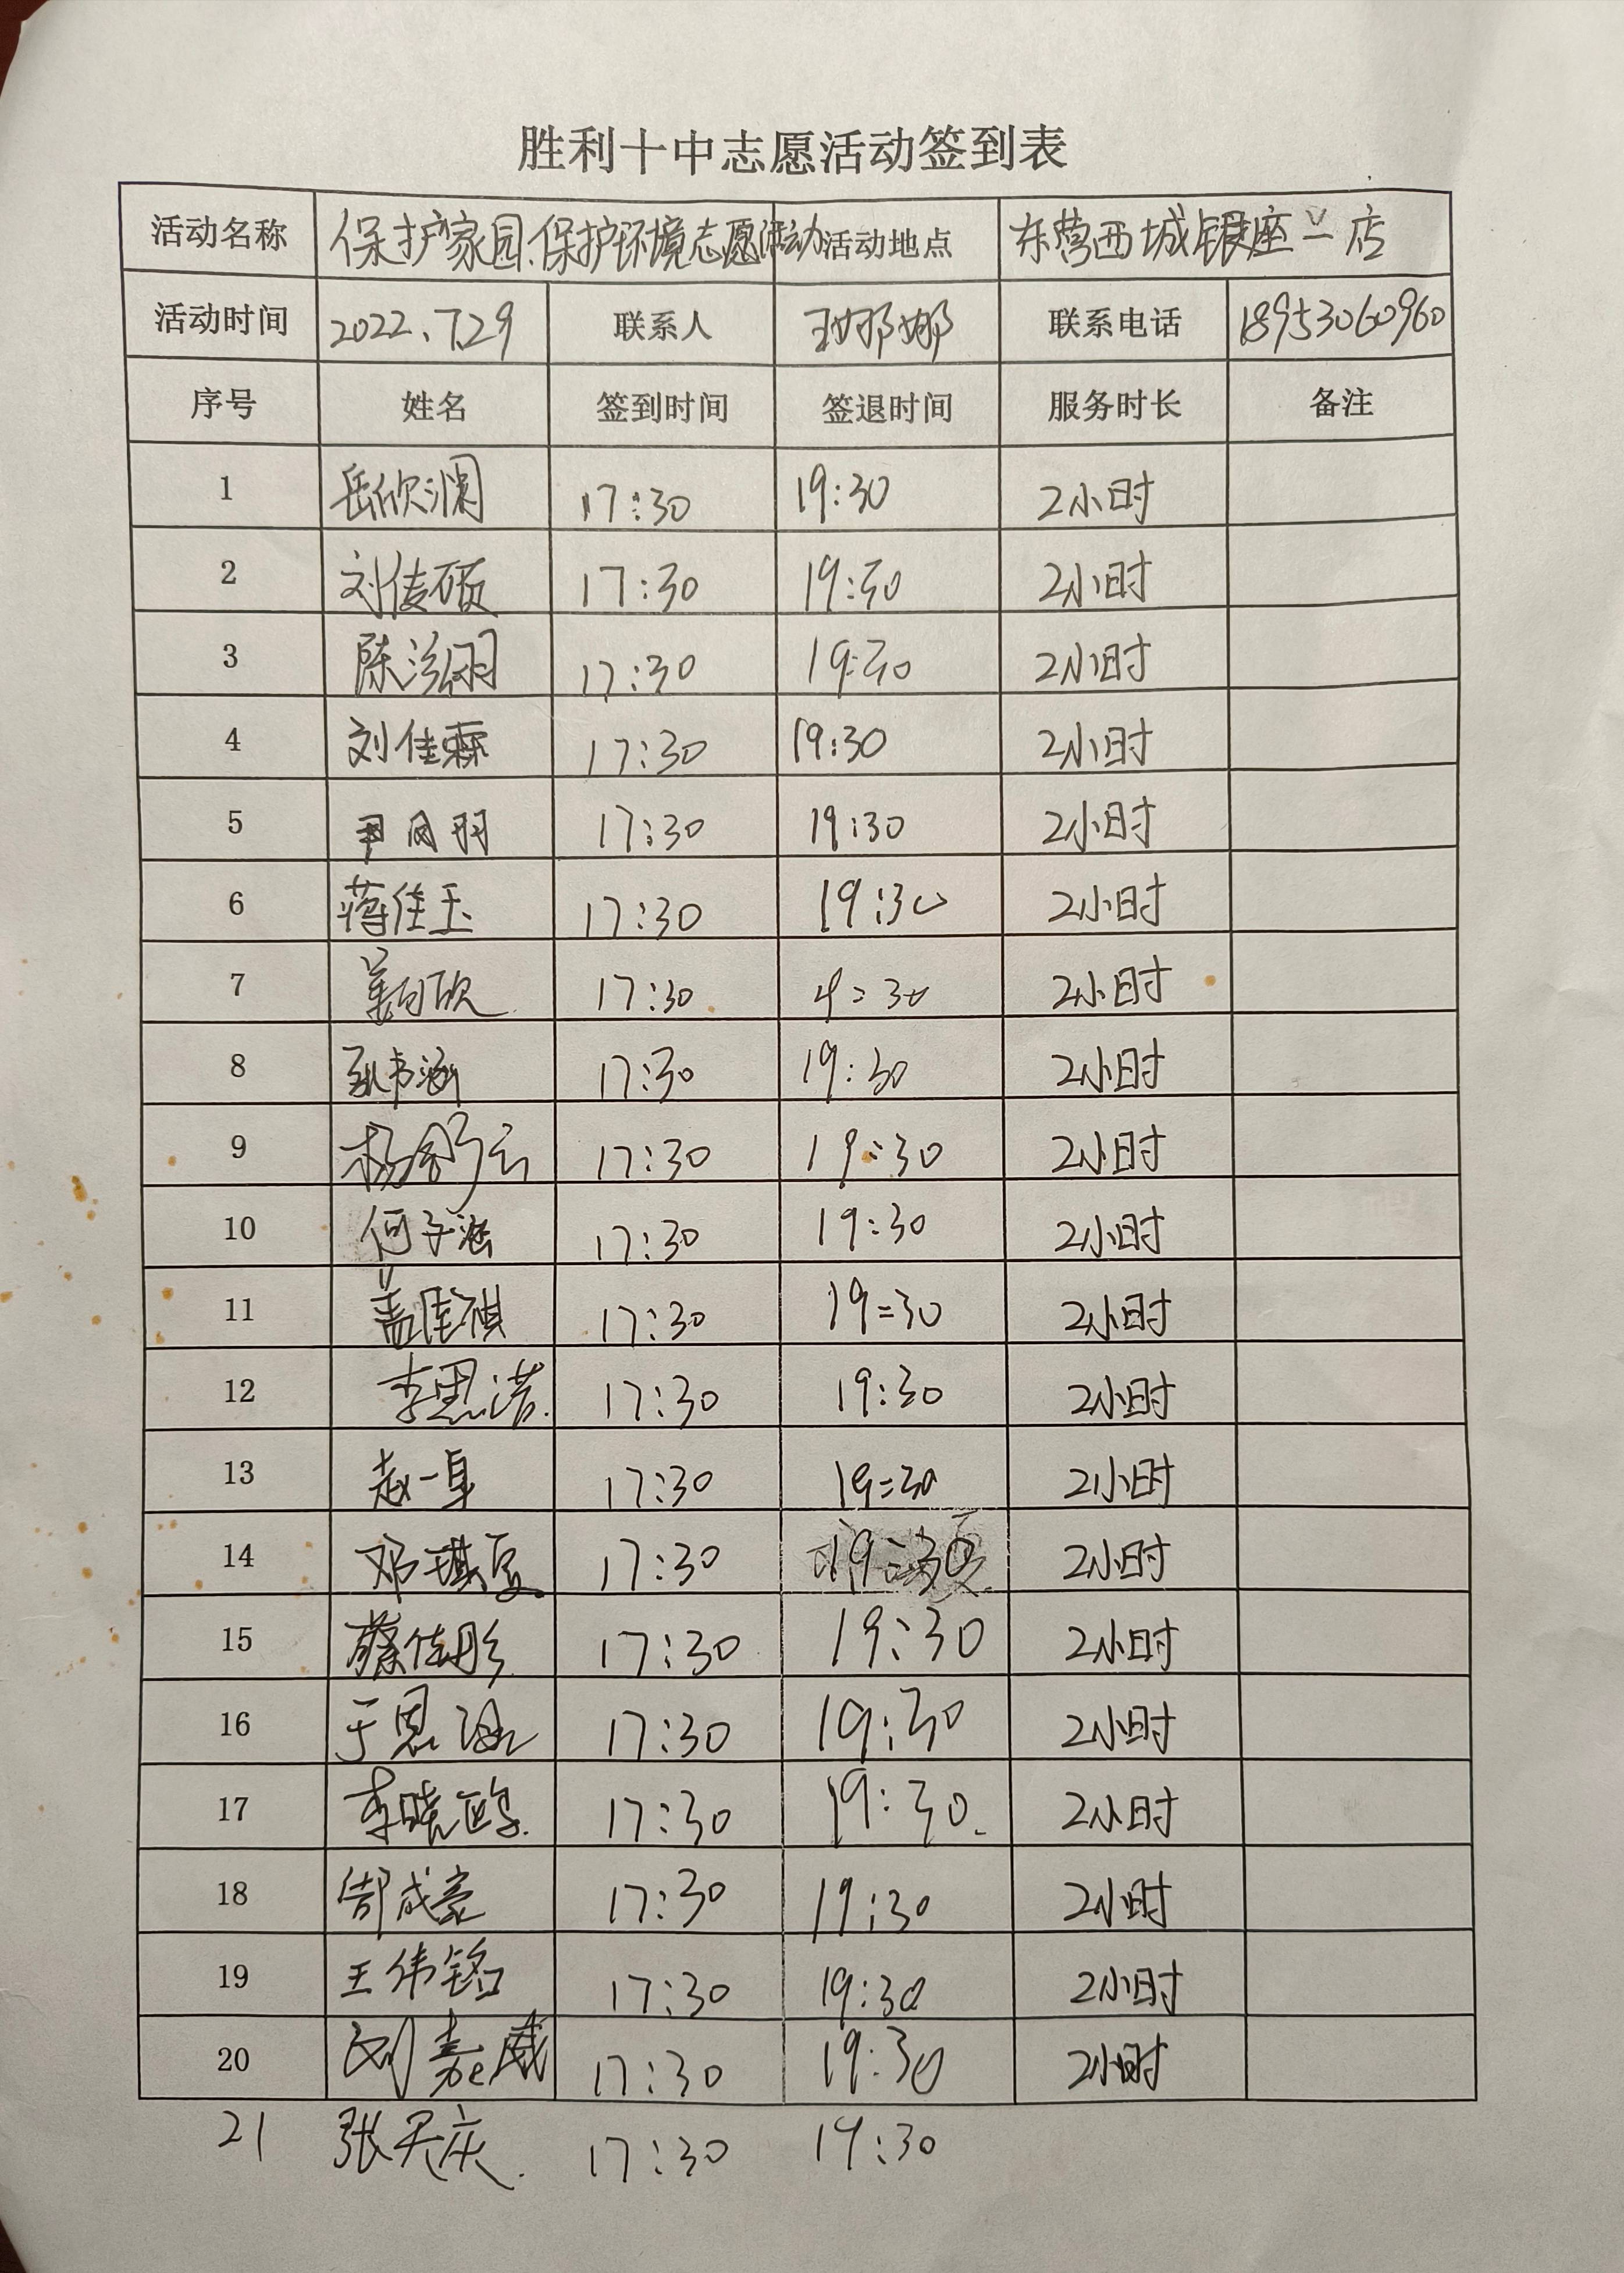 胜利十中志愿活动签到表
活动名称 保护家园.保护环境志愿活动 活动地点 东营西城银座一店
活动时间 2022.7.29 联系人 王娜娜 联系电话 18953060960
序号 姓名 签到时间 签退时间 服务时长 备注
1 岳欣澜 17:30 19:30 2小时
2 刘俊硕 17:30 19:30 2小时
3 陈 17:30 19:30 2小时
4 刘佳霖 17:30 19:30 2小时
5 17:30 19:30 2小时
6 蒋佳玉 17:30 19:30 2小时
7 姜向欣 17:30 19:30 2小时
8 涵 17:30 19:30 2小时
9 杨舒云 17:30 19:30 2小时
10 何子涵 17:30 19:30 2小时
11 盖佳祺 17:30 19:30 2小时
12 李思诺 17:30 19:30 2小时
13 赵一阜 17:30 19:30 2小时
14 邓琪夏 17:30 19:30 2小时
15 蔡佳彤 17:30 19:30 2小时
16 于恩涵 17:30 19:30 2小时
17 李晓鸥 17:30 19:30 2小时
18 成豪 17:30 19:30 2小时
19 王伟铭 17:30 19:30 2小时
20 刘嘉威 17:30 19:30 2小时
21 张天庆 17:30 19:30